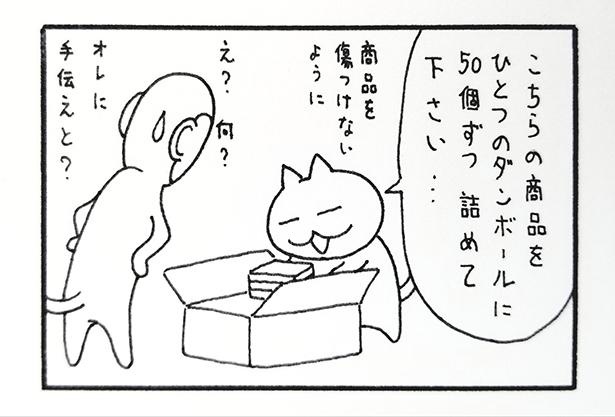 こちらの商品を
ひとつのダンボールに
50個ずつ詰めて
下さい…
商品を
傷つけない
ように
え？何？
オレに
手伝えと？